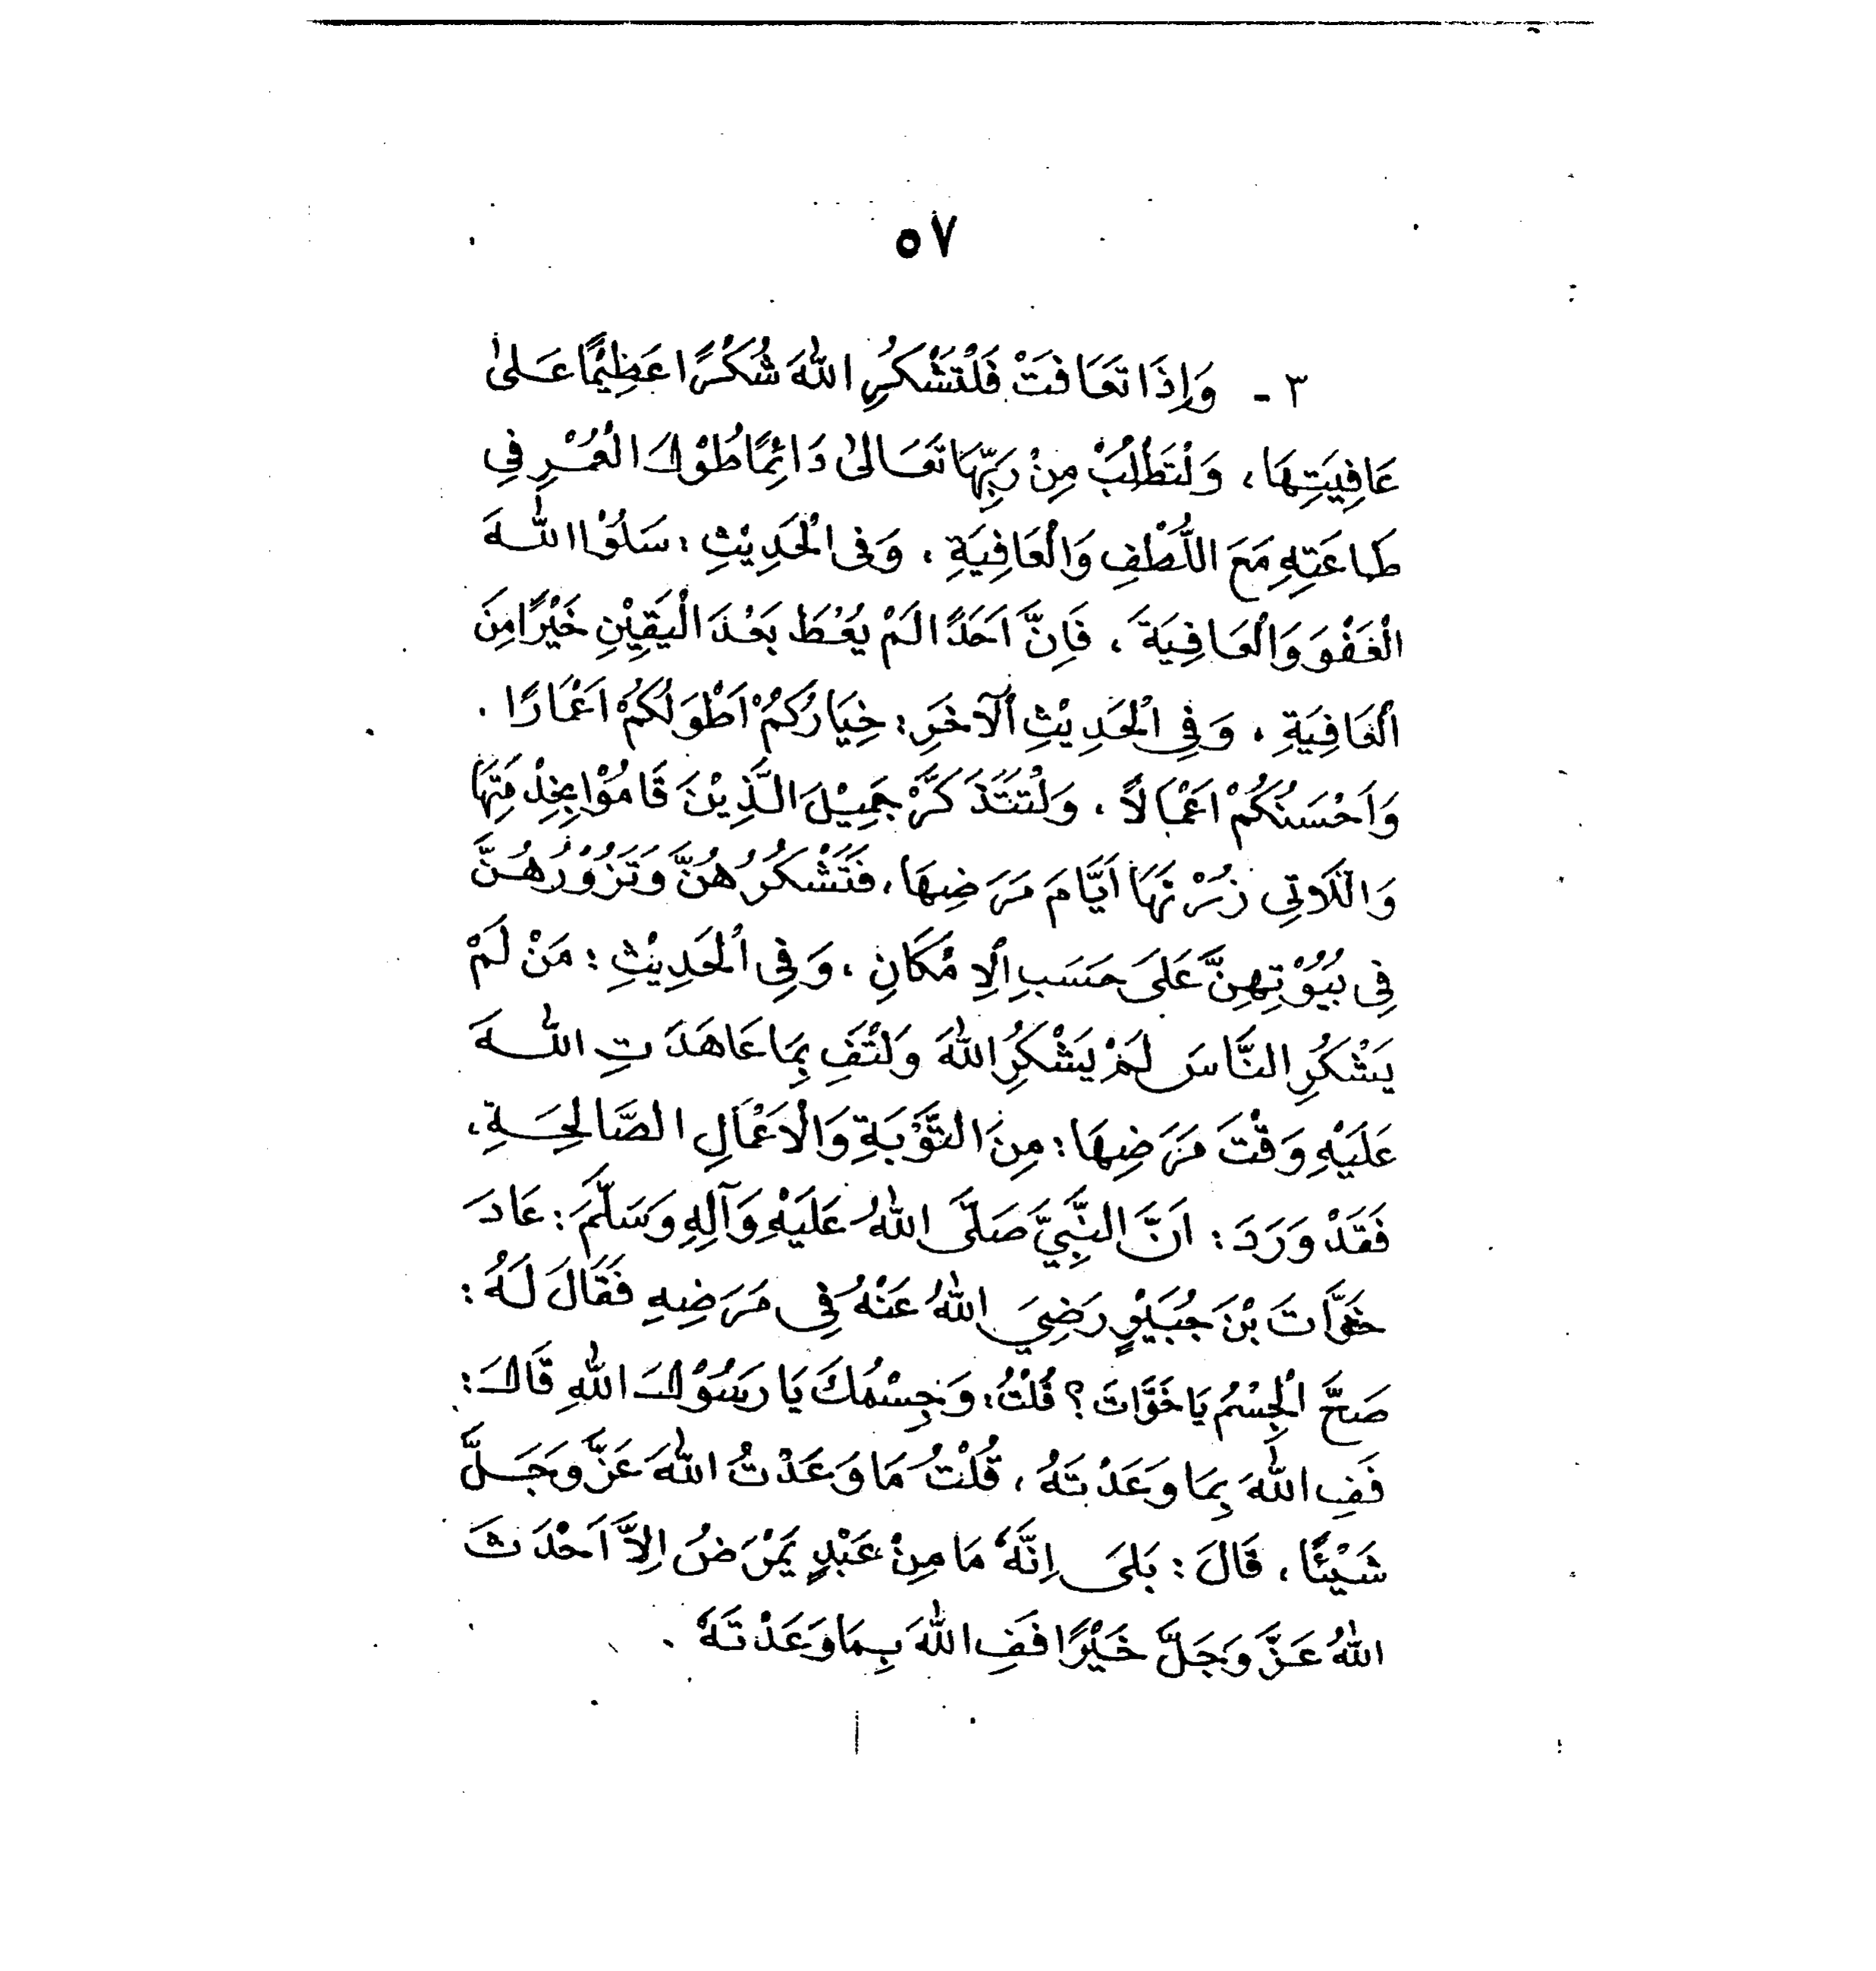 ٥٧
٣ - وَاِذَا تَعَافَتْ فَلْتَشْكُرِ اللهَ شُكْرًا عَظِيْمًا عَلىٰ
عَافِيَتِهَا ، وَلْتَطْلُبْ مِنْ رَبِّهَا تَعَالىٰ دَائِمًا طُوْلَ الْعُمْرِ فِى
طَاعَتِهِ مَعَ اللُّطْفِ وَالْعَافِيَةِ ، وَفِى الْحَدِيْثِ : سَلُوْا اللهَ
الْعَفْوَ وَالْعَافِيَةَ ، فَاِنَّ اَحَدًا لَمْ يُعْطَ بَعْدَ الْيَقِيْنِ خَيْرًا مِنَ
الْعَافِيَةِ ، وَفِى الْحَدِيْثِ الْآخَرِ : خِيَارُكُمْ اَطْوَلُكُمْ اَعْمَارًا .
وَاَحْسَنُكُمْ اَعْمَالاً ، وَلْتَتَذَكَّرْ جَمِيْلَ الَّذِيْنَ قَامُوْا بِخِدْمَتِهَا
وَاللَّاتِى زُرْنَهَا اَيَّامَ مَرَضِهَا ، فَتَشْكُرُهُنَّ وَتَزُوْرُهُنَّ
فِى بُيُوْتِهِنَّ عَلَى حَسَبِ الْاِمْكَانِ ، وَفِى الْحَدِيْثِ : مَنْ لَمْ
يَشْكُرِ النَّاسَ لَمْ يَشْكُرِ اللهَ وَلْتَفِ بِمَا عَاهَدَتِ اللهَ
عَلَيْهِ وَقْتَ مَرَضِهَا : مِنَ التَّوْبَةِ وَالْاَعْمَالِ الصَّالِحَةِ ،
فَقَدْ وَرَدَ : اَنَّ النَّبِيَّ صَلَّى اللهُ عَلَيْهِ وَآلِهِ وَسَلَّمَ : عَادَ
خَوَّاتَ بْنَ جُبَيْرٍ رَضِيَ اللهُ عَنْهُ فِى مَرَضِهِ فَقَالَ لَهُ :
صَحَّ الْجِسْمُ يَا خَوَّاتَ ؟ قُلْتُ : وَجِسْمُكَ يَا رَسُوْلَ اللهِ قَالَ :
فَفِ اللهَ بِمَا وَعَدْتَهُ ، قُلْتُ مَا وَعَدْتُ اللهَ عَزَّ وَجَلَّ
شَيْئًا ، قَالَ : بَلَى اِنَّهُ مَا مِنْ عَبْدٍ يَمْرَضُ اِلاَّ اَحْدَثَ
اللهُ عَزَّ وَجَلَّ خَيْرًا فَفِ اللهَ بِمَا وَعَدْتَهُ .